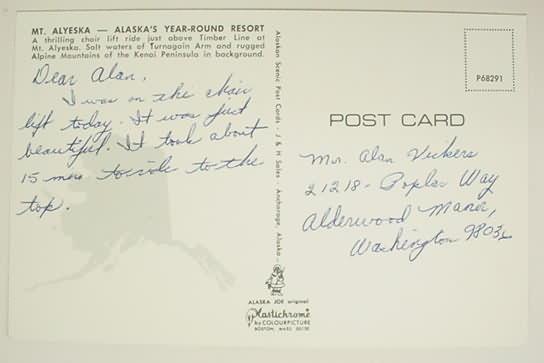 MT. ALYESKA — ALASKA'S YEAR-ROUND RESORT
A thrilling chair lift ride just above Timber Line at
Mt. Alyeska. Salt waters of Turnagain Arm and rugged
Alpine Mountains of the Kenai Peninsula in background.
Dear Alan,
I was on the chair
lift today. It was just
beautiful. It took about
15 min to ride to the
top.
Alaskan Scenic Post Cards - J & H Sales - Anchorage, Alaska
ALASKA JOE original
Plastichrome
by COLOURPICTURE
BOSTON, MASS. 02130
P68291
POST CARD
Mr. Alan Vickers
21218 - Poplar Way
Alderwood Manor,
Washington 9803